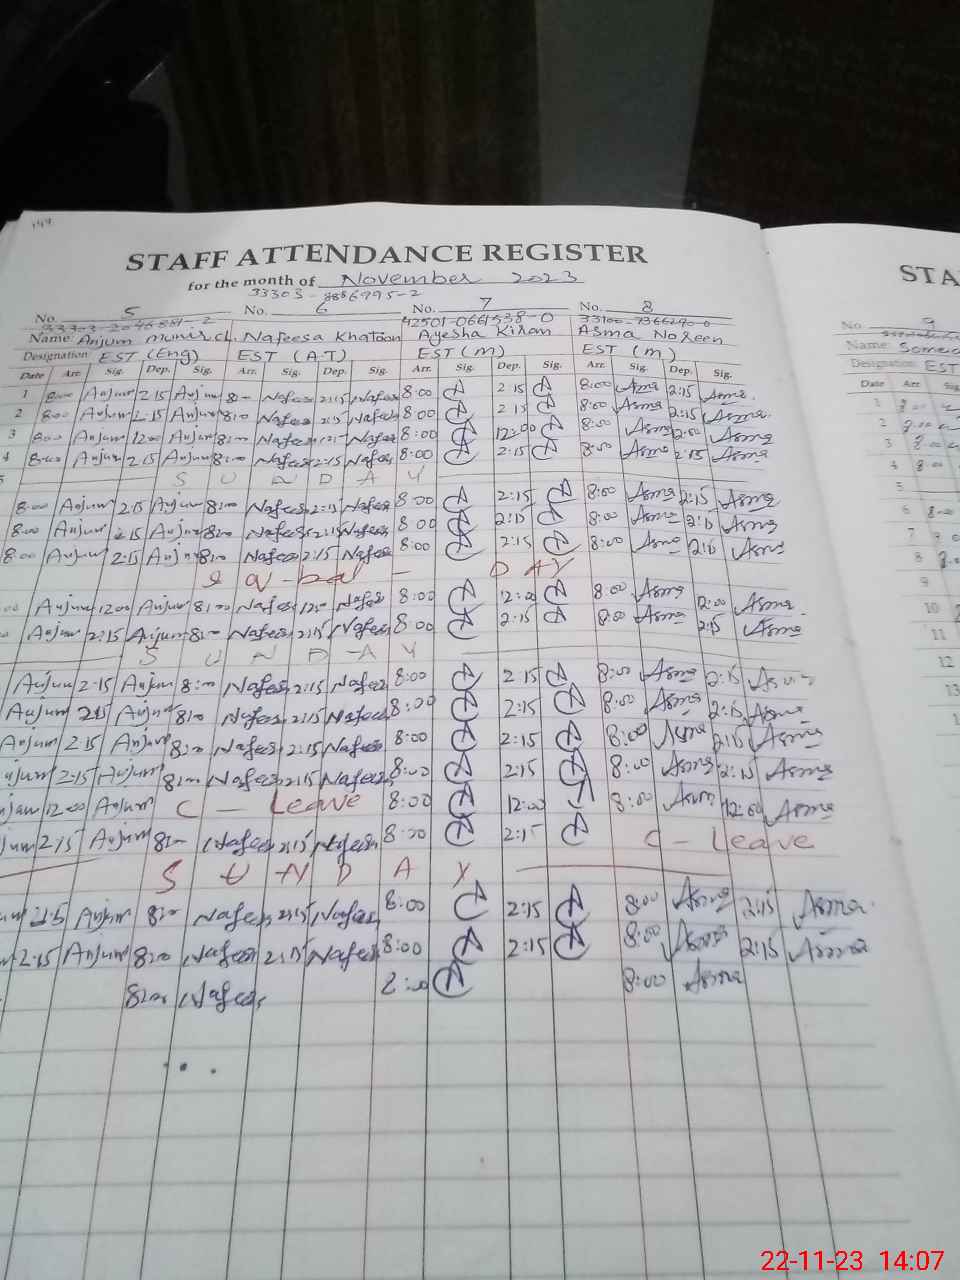 STAFF ATTENDANCE REGISTER
for the month of November 2023
No. 5 No. 6 No. 7 No. 8
Name: Anjum Nafeesa Khatoon Ayesha Kiran Asma Noreen
Designation: EST (Eng) EST (A.T) EST (M) EST (M)
Date Arr. Sig. Dep. Sig. Arr. Sig. Dep. Sig. Arr. Sig. Dep. Sig. Arr. Sig. Dep. Sig.
1 8:00 Anjum 2:15 Anjum 8:00 Nafees 2:15 Nafees 8:00 2:15 8:00 Asma 2:15 Asma
2 8:00 Anjum 2:15 Anjum 8:00 Nafees 2:15 Nafees 8:00 2:15 8:00 Asma 2:15 Asma
3 8:00 Anjum 12:00 Anjum 8:00 Nafees Nafees 8:00 12:00 8:00 Asma 12:00 Asma
4 8:00 Anjum 2:15 Anjum 8:00 Nafees 2:15 Nafees 8:00 2:15 8:00 Asma 2:15 Asma
5 SUNDAY
8:00 Anjum 2:15 Anjum 8:00 Nafees 2:15 Nafees 8:00 2:15 8:00 Asma 2:15 Asma
8:00 Anjum 2:15 Anjum 8:00 Nafees 2:15 Nafees 8:00 2:15 8:00 Asma 2:15 Asma
8:00 Anjum 2:15 Anjum 8:00 Nafees 2:15 Nafees 8:00 2:15 8:00 Asma 2:15 Asma
DAY
Anjum 12:00 Anjum 8:00 Nafees 12:00 Nafees 8:00 12:00 8:00 Asma 12:00 Asma
Anjum 2:15 Anjum 8:00 Nafees 2:15 Nafees 8:00 2:15 8:00 Asma 2:15 Asma
SUNDAY
Anjum 2:15 Anjum 8:00 Nafees 2:15 Nafees 8:00 2:15 8:00 Asma 2:15 Asma
Anjum 2:15 Anjum 8:00 Nafees 2:15 Nafees 8:00 2:15 8:00 Asma 2:15 Asma
Anjum 2:15 Anjum 8:00 Nafees 2:15 Nafees 8:00 2:15 8:00 Asma 2:15 Asma
2:15 Anjum 8:00 Nafees 2:15 Nafees 8:00 2:15 8:00 Asma 2:15 Asma
12:00 Anjum C - Leave 8:00 12:00 8:00 Asma 12:00 Asma
2:15 Anjum 8:00 Nafees 2:15 Nafees 8:00 2:15 C - Leave
SUNDAY
2:15 Anjum 8:00 Nafees 2:15 Nafees 8:00 2:15 8:00 Asma 2:15 Asma
2:15 Anjum 8:00 Nafees 2:15 Nafees 8:00 2:15 8:00 Asma 2:15 Asma
8:00 Nafees 8:00 8:00 Asma
STA
No. 9
Name:
Designation: EST
Date Arr.
1
2
3
4
5
6
7
8
9
10
11
12
22-11-23 14:07